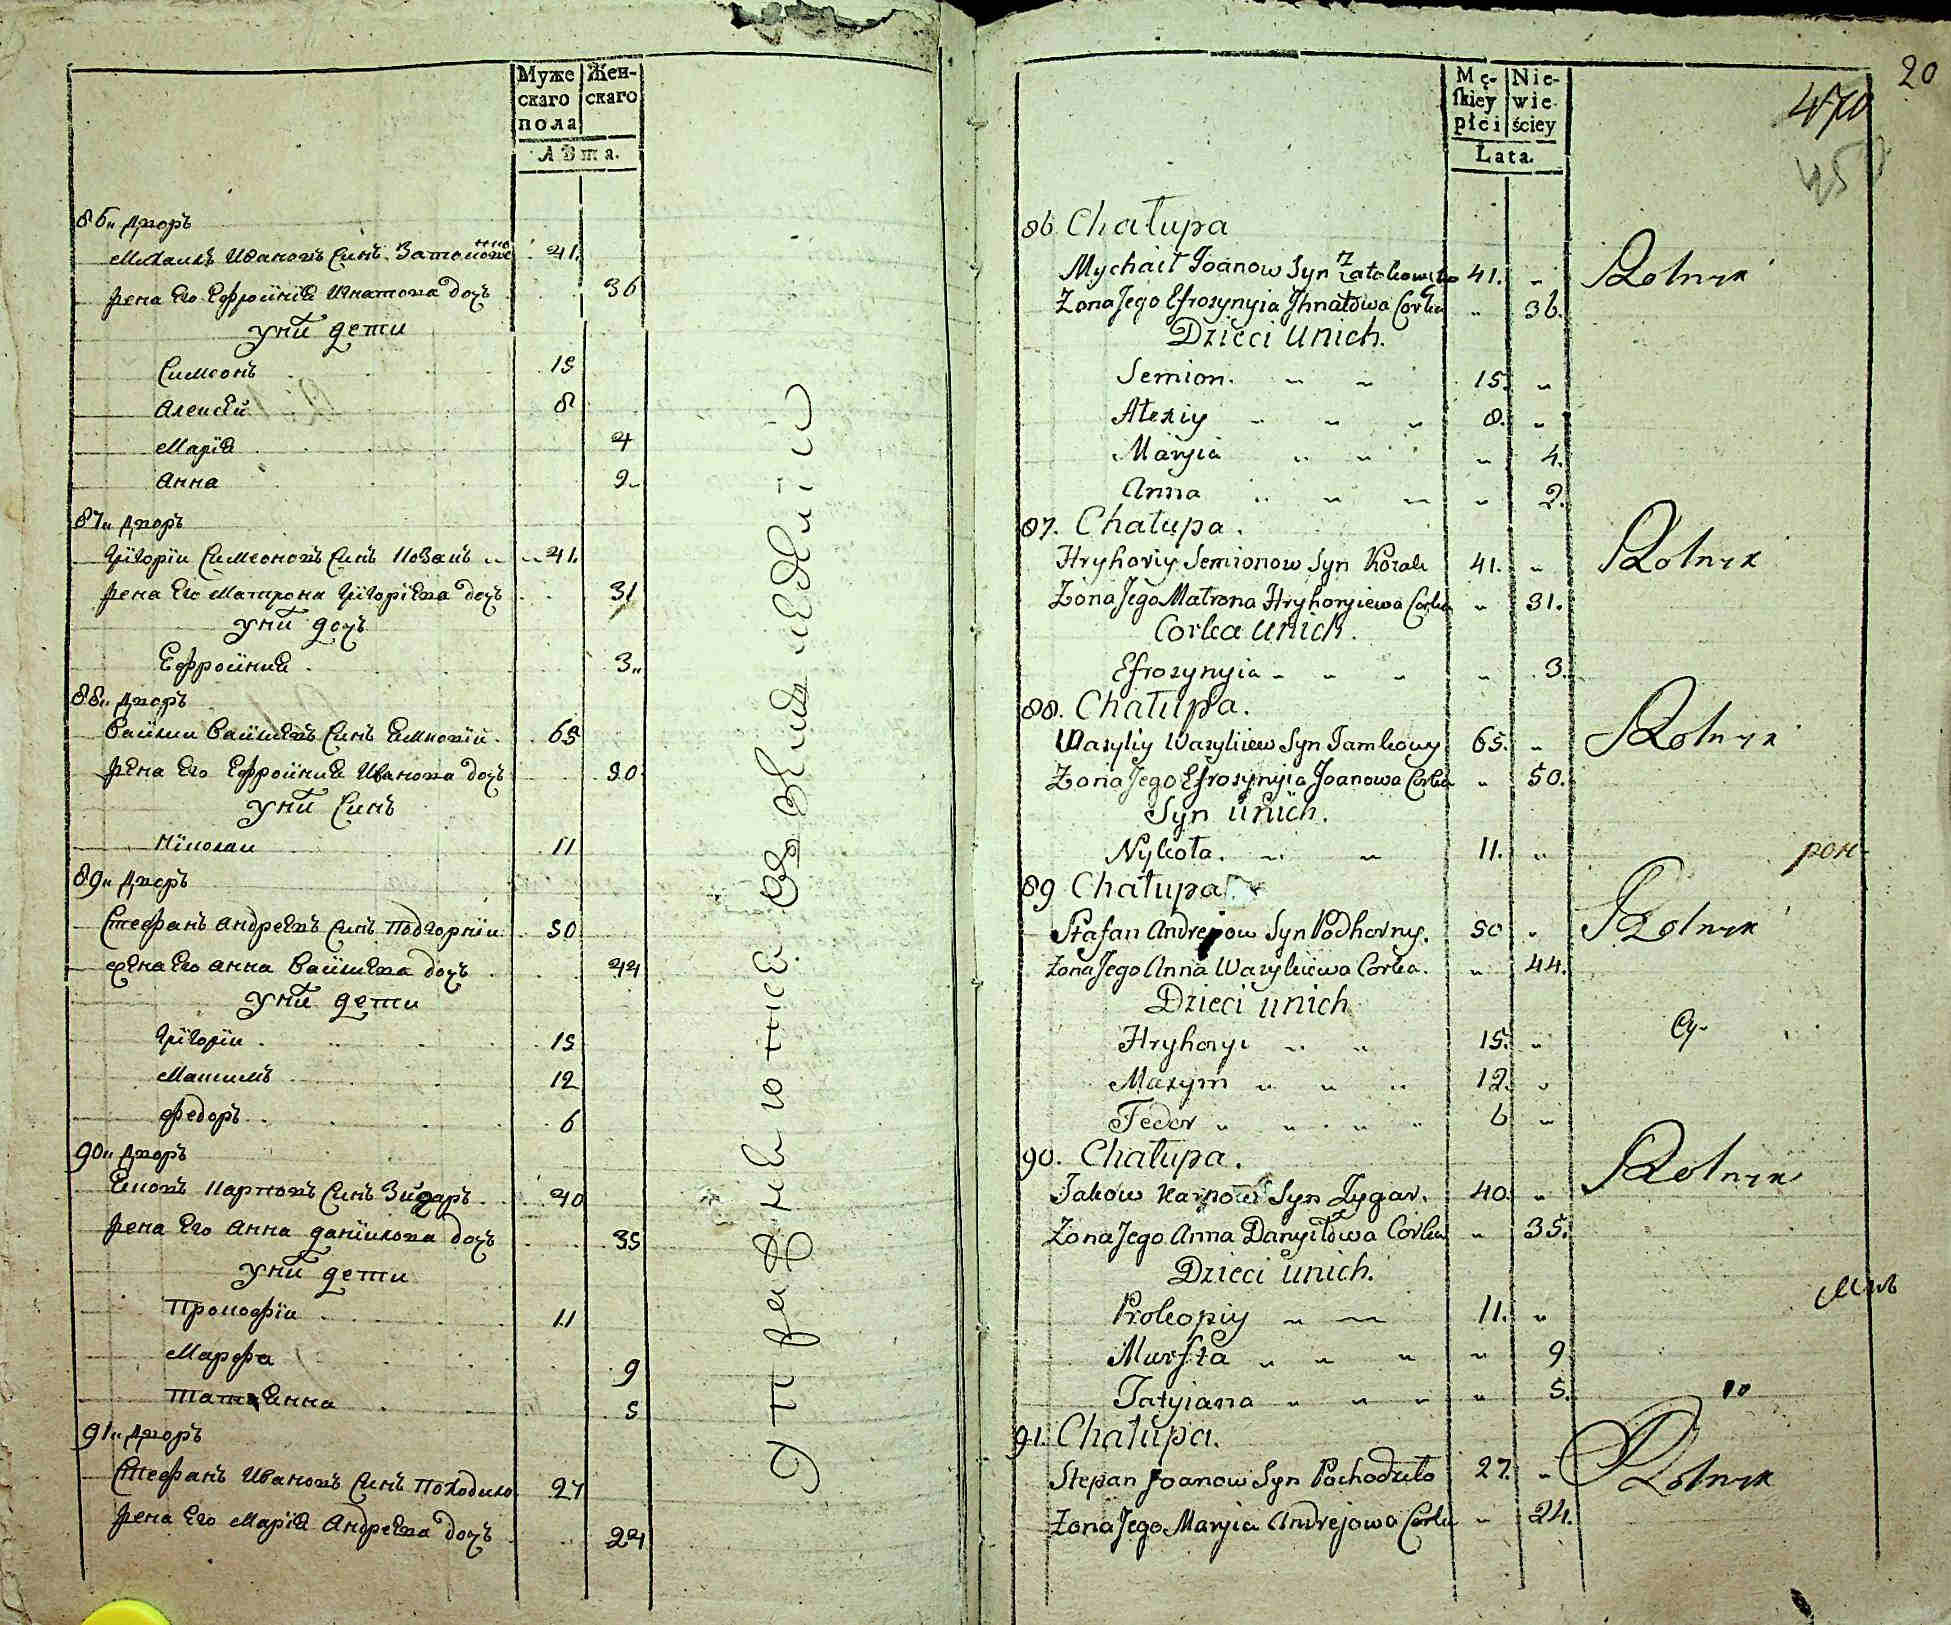 Муже
скаго
пола
Жен-
скаго
Лѣта.
86 Дворъ
Михаилъ Ивановъ Синъ 41.
жена Его Ефросиніа Игнатова дочъ 36
у них дети
Симеонъ 15
Алексѣй 8
Маріа 4
Анна 2
87 Дворъ
Григорій Симеоновъ Синъ Козакъ 41.
жена Его Матрона Григоріева дочъ 31
у них дочъ
Ефросиниа 3
88 Дворъ
Василии Василиевъ Синъ 65
жена Его Ефросиниа Иванова дочъ 50
у них Синъ
Николаи 11
89 Дворъ
Стефанъ Андреевъ Синъ Подгорніи 50
жена Его Анна Василиева дочъ 44
у них дети
Григоріи 15
Максимъ 12
Федоръ 6
90 Дворъ
Еяковъ Карповъ Синъ Зигаръ 40
жена Его Анна Даниилова дочъ 35
у них дети
Прокофіи 11
Марфа 9
Татиѣнна 5
91 Дворъ
Стефанъ Ивановъ Синъ Походило 27
жена Его Маріа Андреева дочъ 24
20
Mę-
skiey
płci
Nie-
wie-
ściey
Lata.
470
86 Chałupa
Mychaił Joanow Syn 41. „ Rolnik
Żona Jego Efrozynyia Jhnatowa Corka „ 36.
Dzieci unich.
Semion. „ „ 15. „
Alexiy „ „ „ 8. „
Maryia „ „ „ 4.
Anna „ „ „ „ 2.
87. Chałupa.
Hryhoriy Semionow Syn Kozak 41. „ Rolnik
Żona Jego Matrona Hryhoryiewa Corka „ 31.
Corka unich.
Efrozynyia „ „ „ „ 3.
88. Chałupa.
Wasyliy Wasyliiew Syn Jamkowy 65. „ Rolnik
Żona Jego Efrozynyia Joanowa Corka „ 50.
Syn unich.
Nykoła. „ „ 11. „
89 Chałupa
Stafan Andrejow Syn Podhorny. 50 „ Rolnik
Żona Jego Anna Wasyliiewa Corka. „ 44.
Dzieci unich
Hryhoryi „ „ 15. „
Maxym „ „ „ 12. „
Fedor „ „ „ „ 6 „
90. Chałupa.
Jakow Karpow Syn Zygar. 40. „ Rolnik
Żona Jego Anna Danyiłowa Corka „ 35.
Dzieci unich.
Prokopiy „ „ 11. „
Marfta „ „ „ „ 9
Tatyiana „ „ „ „ 5.
91. Chałupa.
Stepan Joanow Syn Pochodziło 27. „ Rolnik
Żona Jego Maryia Andrejowa Corka „ 24.